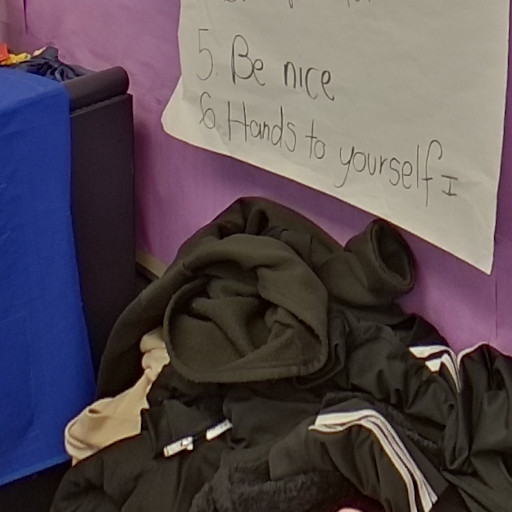 5. Be nice
6. Hands to yourself